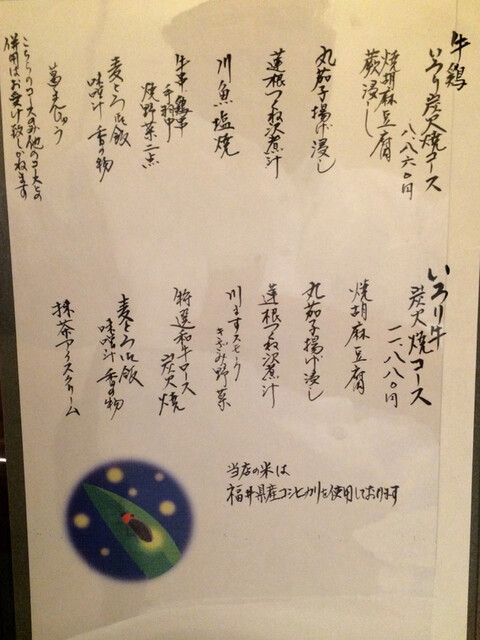 牛鶏
いろり炭火焼コース
八、八六〇円
焼胡麻豆腐
蕨浸し
丸茄子揚げ浸し
蓮根つくね沢煮汁
川魚塩焼
牛串 鶏串
手羽中
焼野菜二点
麦とろ御飯
味噌汁 香の物
葛まんじゅう
こちらのコースのみ他のコースとの
併用はお受け致しかねます
いろり牛
炭火焼コース
一一、八八〇円
焼胡麻豆腐
丸茄子揚げ浸し
蓮根つくね沢煮汁
川ますスモーク
きざみ野菜
特選和牛ロース
炭火焼
麦とろ御飯
味噌汁 香の物
抹茶アイスクリーム
当店の米は
福井県産コシヒカリを使用しております